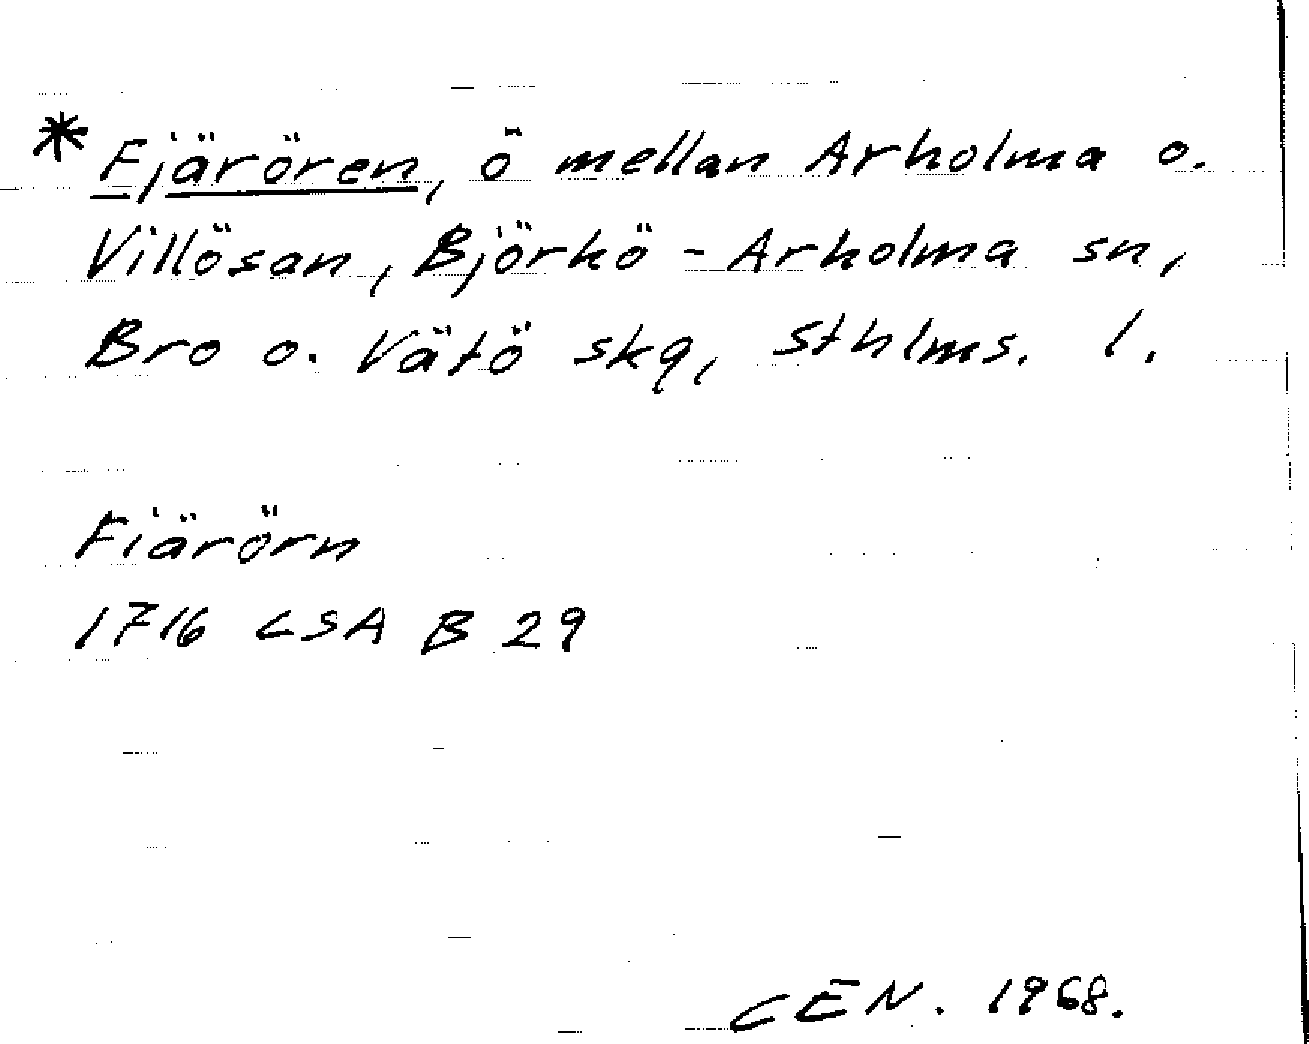 * Fjärören, ö mellan Arholma o.
Villösan, Björkö - Arholma sn,
Bro o. Vätö skg, Sthlms. l.
Fiärörn
1716 LSA B 29
CEN. 1968.